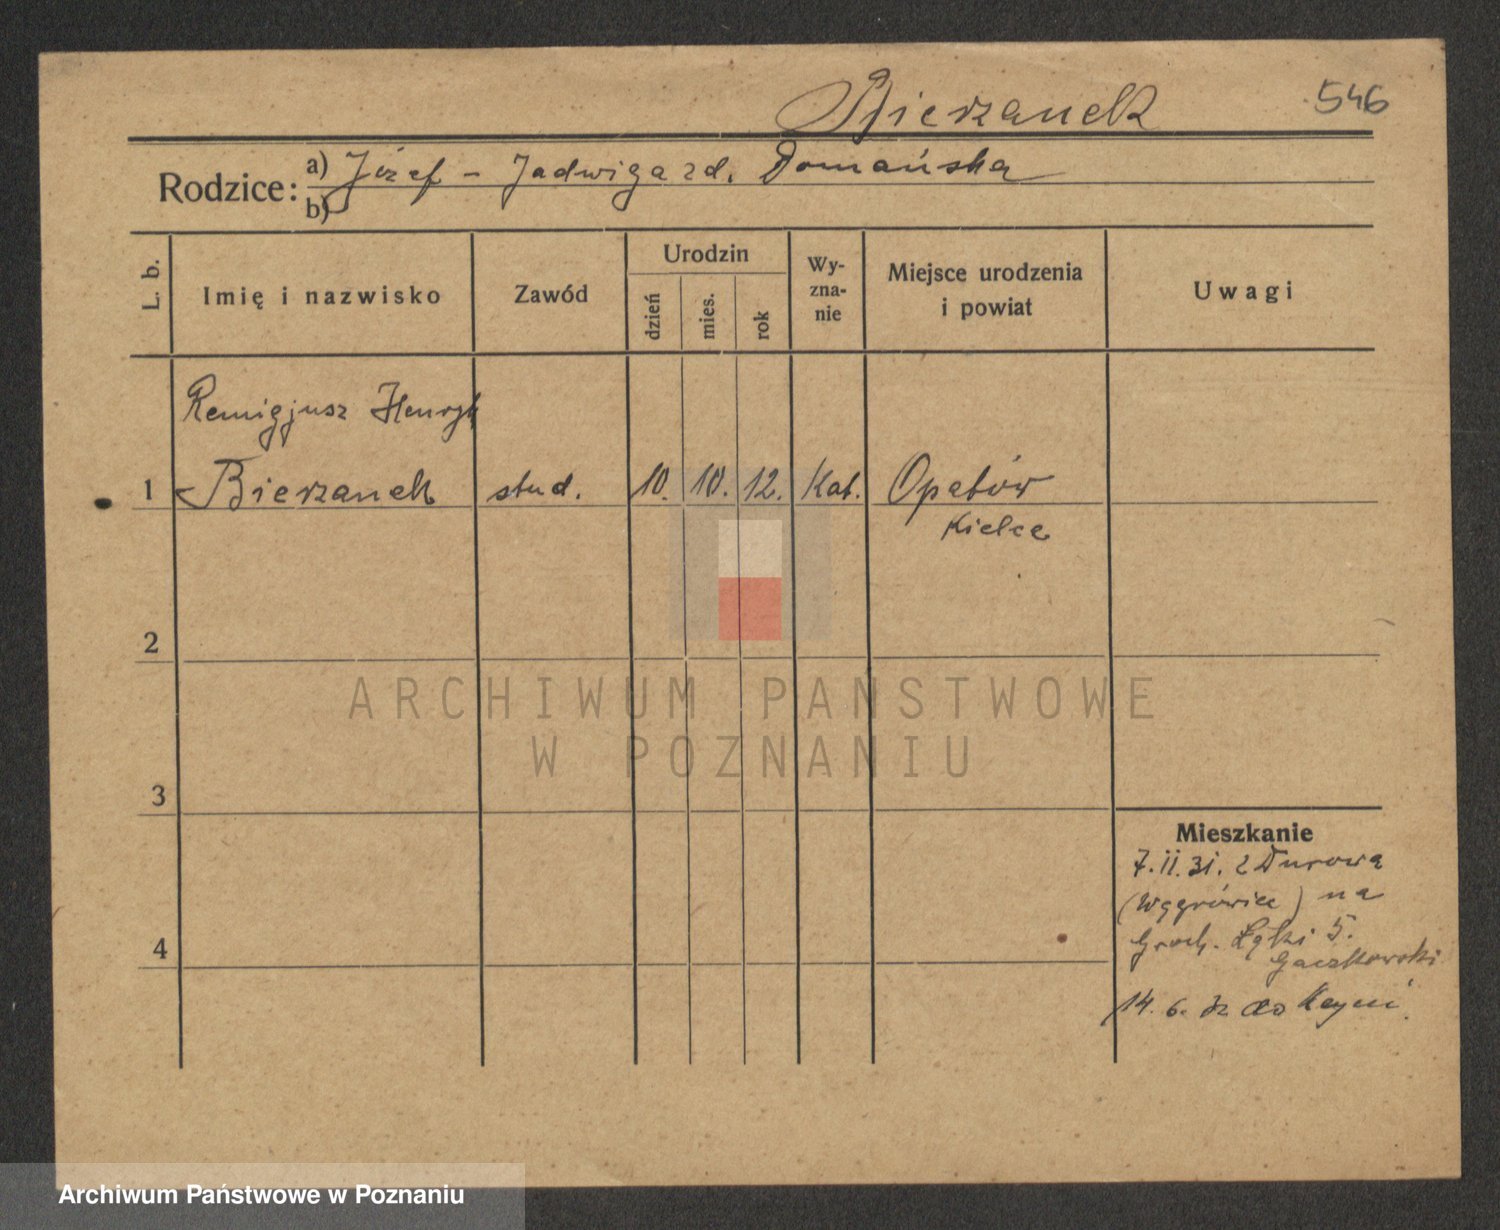 Bierzanek 546
Rodzice: a) Józef – Jadwiga zd. Domańska
b)
L. b. Imię i nazwisko Zawód Urodzin dzień mies. rok Wy-zna-nie Miejsce urodzenia i powiat Uwagi
Remigjusz Henryk
1 Bierzanek stud. 10. 10. 12. Kat. Opatów
Kielce
2
3
4
Mieszkanie
7.II.31. z Durowa
(Wągrówiec) na
Groch. Łąki 5.
Gaczkowski
14. 6. 32 do Kcyni.
ARCHIWUM PAŃSTWOWE
W POZNANIU
Archiwum Państwowe w Poznaniu